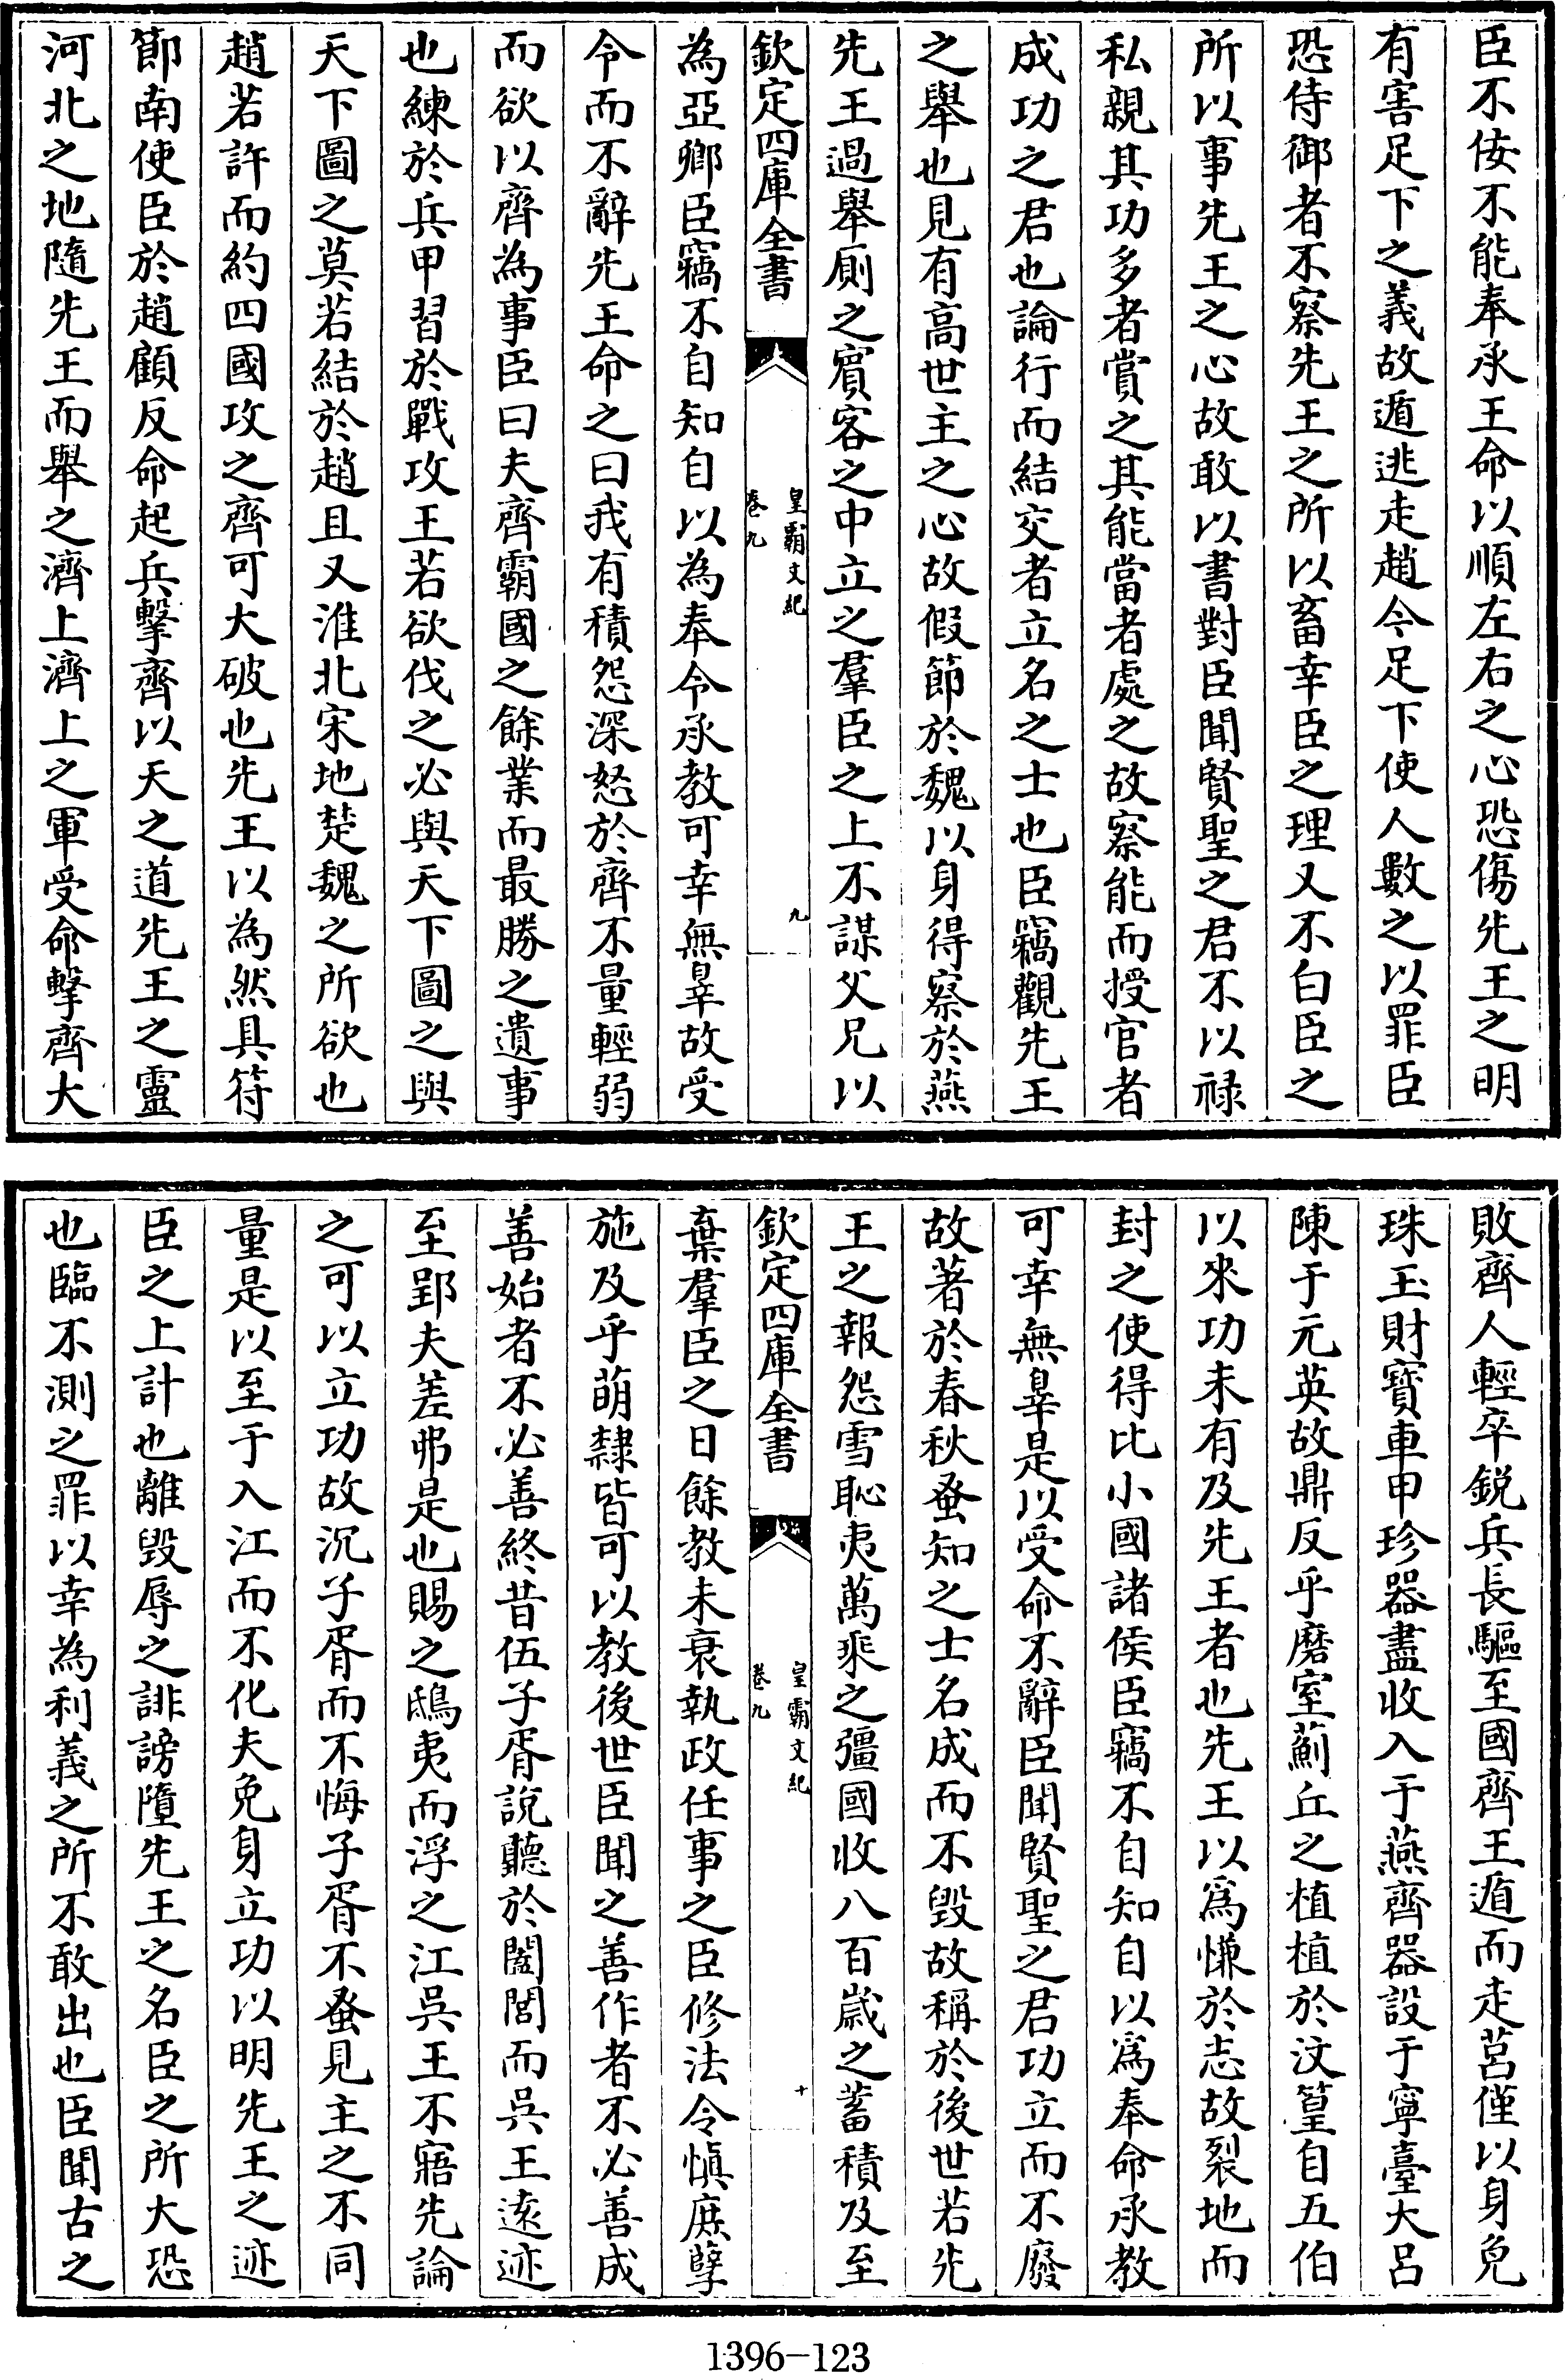 臣不佞不能奉承王命以順左右之心恐傷先王之明
有害足下之義故遁逃走趙今足下使人數之以罪臣
恐侍御者不察先王之所以畜幸臣之理又不白臣之
所以事先王之心故敢以書對臣聞賢聖之君不以祿
私親其功多者賞之其能當者處之故察能而授官者
成功之君也論行而結交者立名之士也臣竊觀先王
之舉也見有高世主之心故假節於魏以身得察於燕
先王過舉廁之賓客之中立之羣臣之上不謀父兄以
欽定四庫全書
皇霸文紀
卷九
九
為亞卿臣竊不自知自以為奉令承教可幸無辠故受
令而不辭先王命之曰我有積怨深怒於齊不量輕弱
而欲以齊為事臣曰夫齊霸國之餘業而最勝之遺事
也練於兵甲習於戰攻王若欲伐之必與天下圖之與
天下圖之莫若結於趙且又淮北宋地楚魏之所欲也
趙若許而約四國攻之齊可大破也先王以為然具符
節南使臣於趙顧反命起兵擊齊以天之道先王之靈
河北之地隨先王而舉之濟上濟上之軍受命擊齊大
敗齊人輕卒銳兵長驅至國齊王遁而走莒僅以身免
珠玉財寶車甲珍器盡收入于燕齊器設于寧臺大呂
陳于元英故鼎反乎磿室薊丘之植植於汶篁自五伯
以來功未有及先王者也先王以爲慊於志故裂地而
封之使得比小國諸侯臣竊不自知自以爲奉命承教
可幸無辠是以受命不辭臣聞賢聖之君功立而不廢
故著於春秋蚤知之士名成而不毀故稱於後世若先
王之報怨雪恥夷萬乘之彊國收八百歲之蓄積及至
欽定四庫全書
皇霸文紀
卷九
十
棄羣臣之日餘教未衰執政任事之臣修法令慎庶孽
施及乎萌隸皆可以教後世臣聞之善作者不必善成
善始者不必善終昔伍子胥說聽於闔閭而吳王遠迹
至郢夫差弗是也賜之鴟夷而浮之江吳王不寤先論
之可以立功故沉子胥而不悔子胥不蚤見主之不同
量是以至于入江而不化夫免身立功以明先王之迹
臣之上計也離毀辱之誹謗墮先王之名臣之所大恐
也臨不測之罪以幸為利義之所不敢出也臣聞古之
1396-123